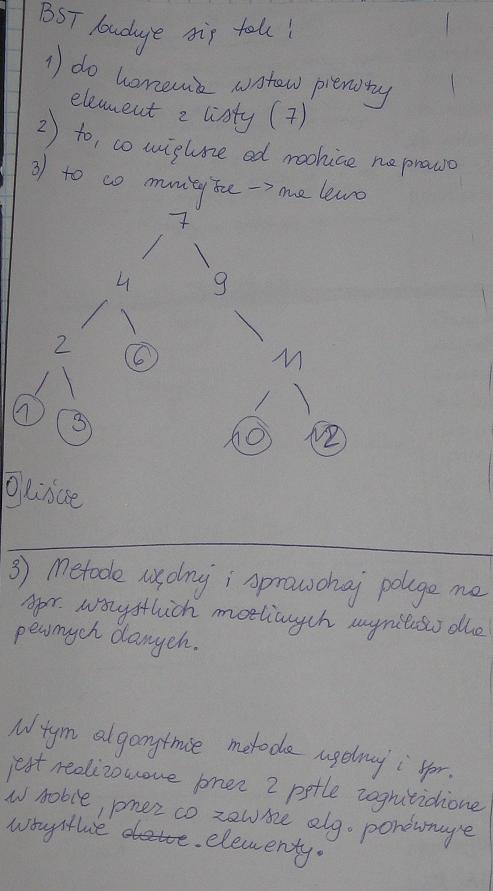 BST buduje się tak!
1) do korzenia wstaw pierwszy
element z listy (7)
2) to, co większe od rodzica na prawo
3) to co mniejsze -> na lewo
7
4 9
2 6 11
1 3 10 12
O liście
3) Metoda wędruj i sprawdzaj polega na
spr. wszystkich możliwych wyników dla
pewnych danych.
W tym algorytmie metoda wędruj i spr.
jest realizowana przez 2 pętle zagnieżdżone
w sobie, przez co zawsze alg. porównuje
wszystkie dane. elementy.